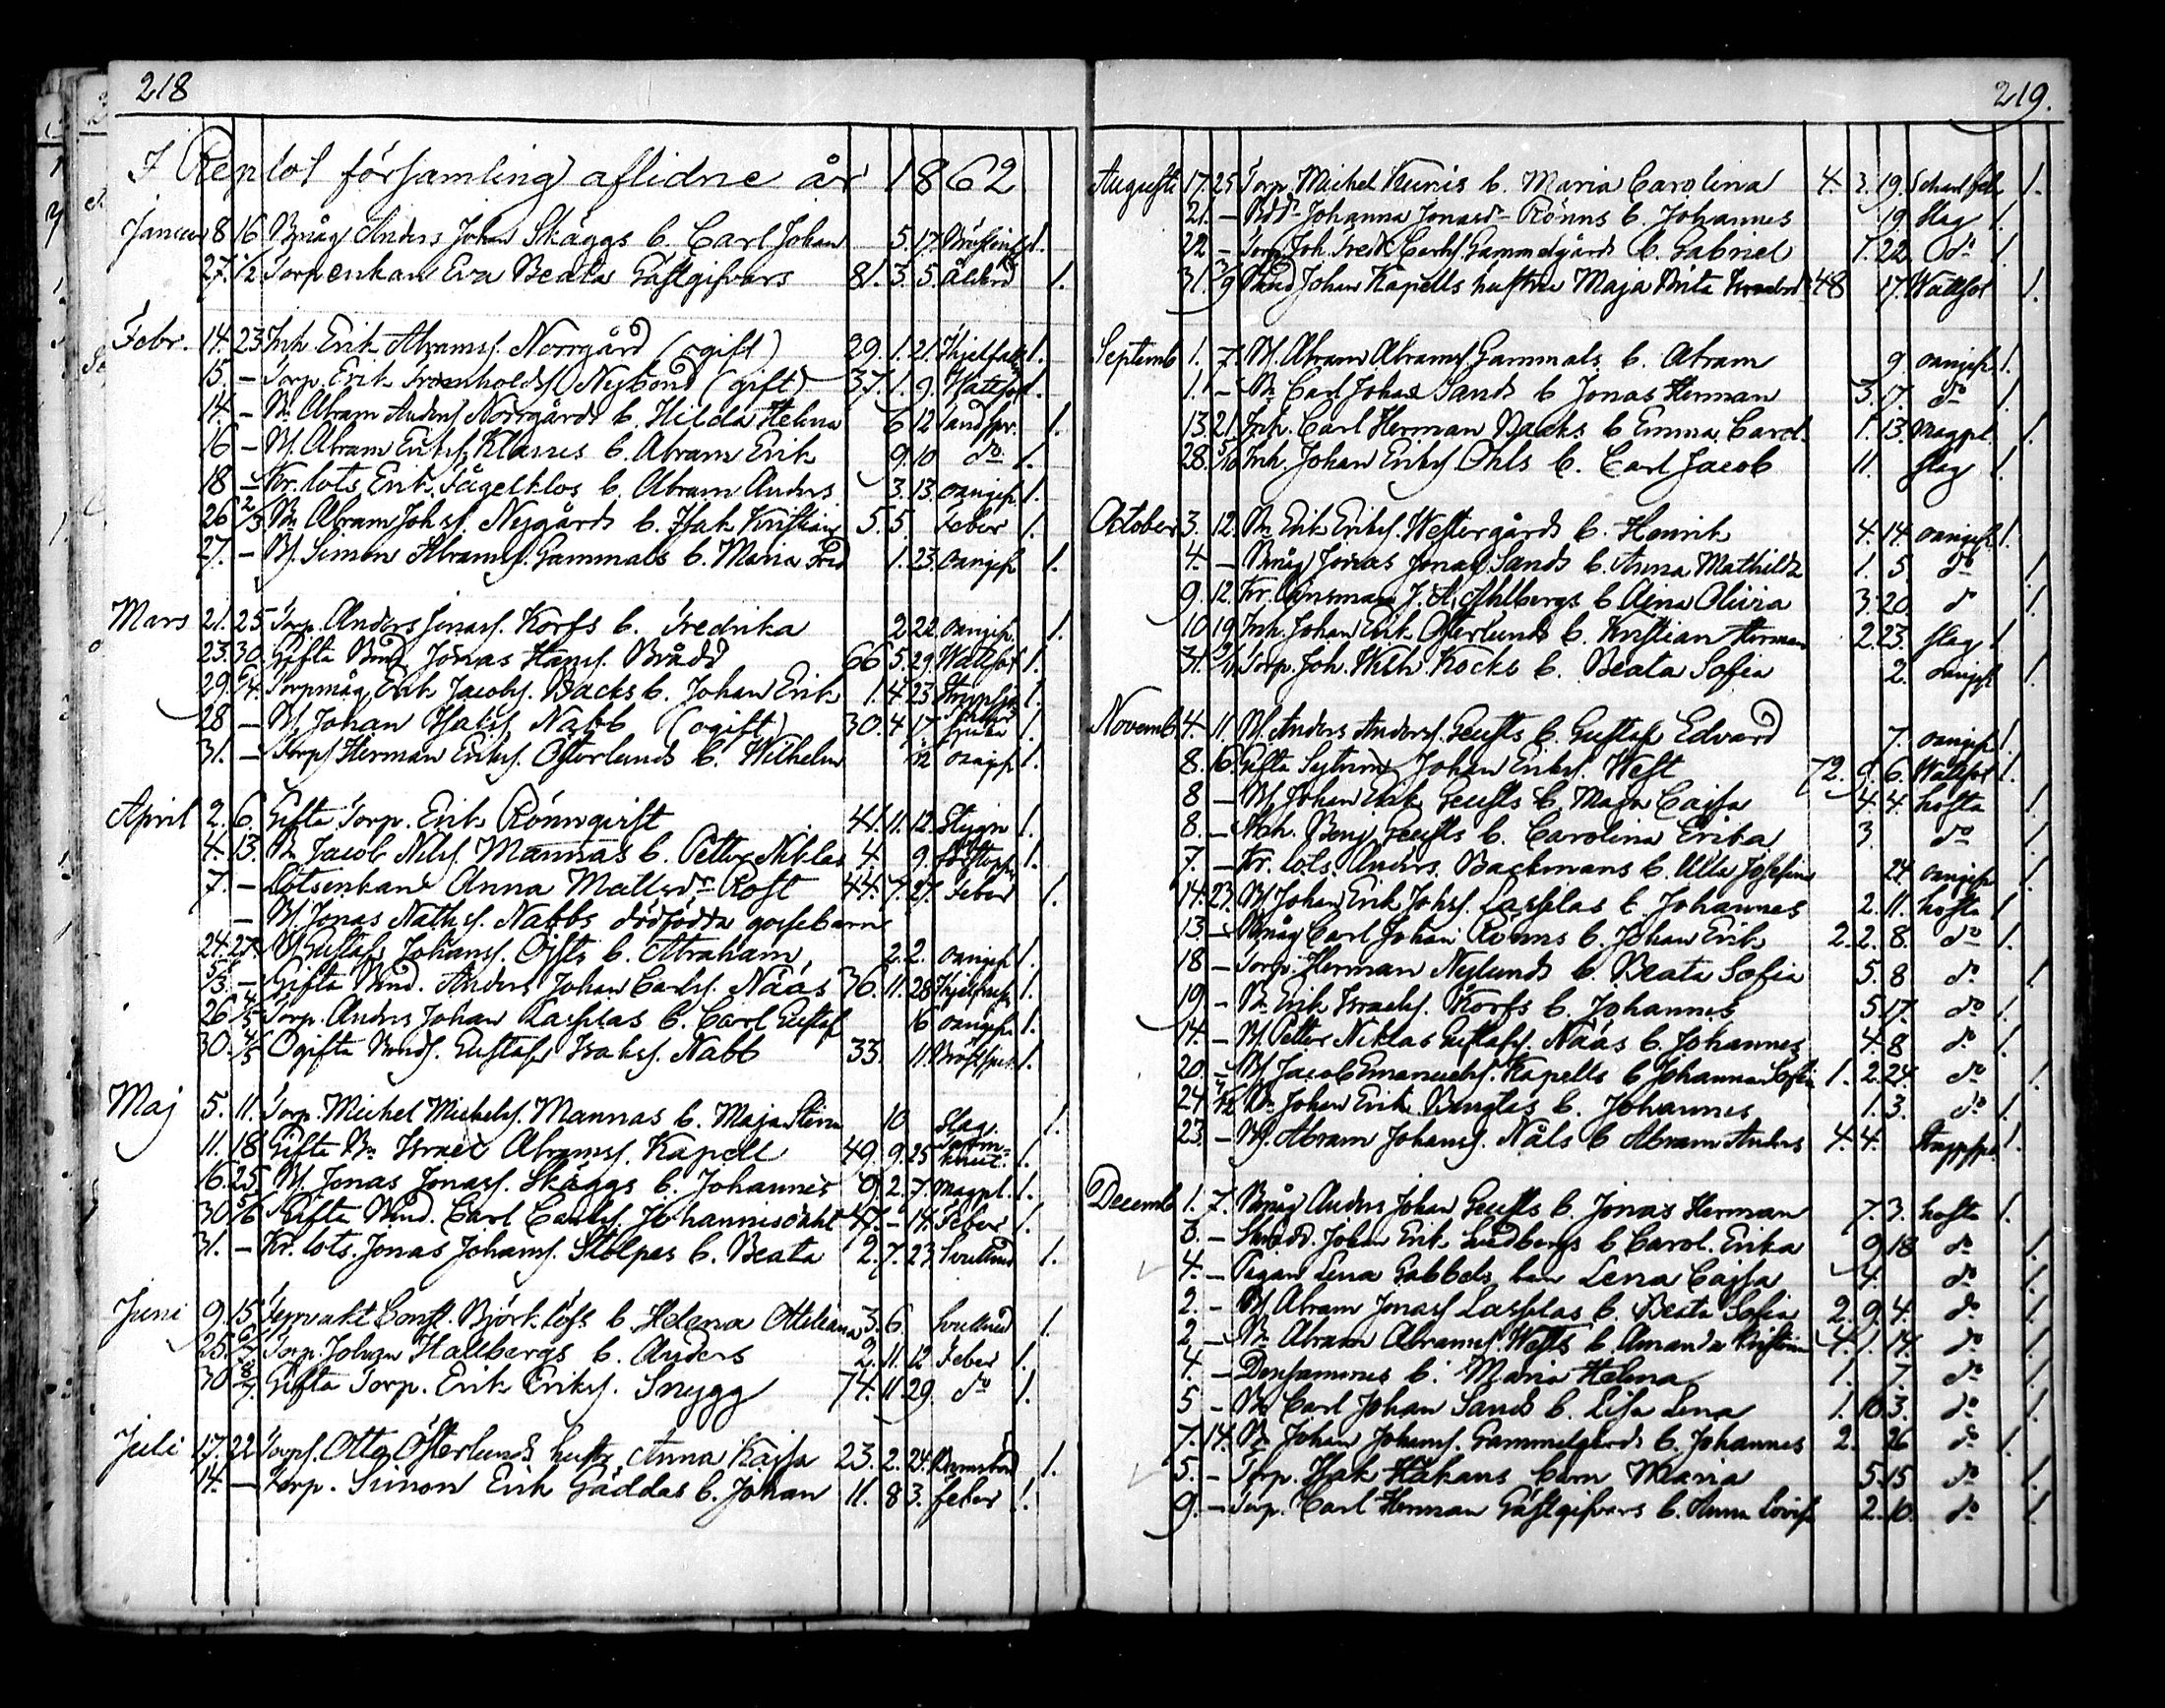 218
I Replot församling aflidne år 1862
Januar 8 16 Bmåg Anders Johan Skäggs b. Carl Johan 5. 17. 1.
27. 1/2 Torpenkan Eva Beata Gästgifvars 81. 3. 5. Ålderd 1.
Febr. 14. 23 Inh Erik Abramss. Norrgård (ogift) 29. 1. 21. 1.
15. – Torp. Erik Nybond (gift) 37. 1. 9. Wattsot 1.
14. – Bn Abram Anderss Norrgårds b. Hilda Helena 6 12 1.
16 – Bs. Abram Erikss. Klanes b. Abram Erik 9. 10 do 1.
18 – Kr. lots Erik Fågelklos b. Abram Anders 3. 13. oangif. 1.
26 2/3 Bn Abram Johss. Nygårds b. Isak Kristian 5. 5. Feber 1.
27. – Bs. Simon Abramss. Gammals b. Maria Fred 1. 23. oangif 1.
Mars 21. 25 Torp. Anders Jonass. Korfs b. Fredrika 2 22 oangif. 1.
23. 30 Gifta Bond. Jonas Hanss. Brådd 66 5. 29. Wattsot 1.
29. Torpmåg Erik Jacobs. Backs b. Johan Erik 1. 4 23 1.
28 – Bs Johan Isakss Nabb (ogift) 30. 4 17. 1.
31. – Torps Herman Erikss. Österlunds b. Wilhelm 12 oangif 1.
April 2. 6 Gifta Torp. Erik Rönnqvist 41. 11. 12. Stygn 1.
4. 13. Bn Jacob Nilss. Mannas b. Petter Niklas 4 9. 1.
7. – Lotsenkan Anna Mattsdr Rost 44. 7. 27. Feber 1.
– Bs Jonas Mathss. Nabbs dödfödda gossebarn
24. 27. Bs Gustaf Johanss. Öists b. Abraham, 2. 2. oangif 1.
– Gifta Bond. Anders Johan Carlss. Näås 36. 11. 28 1.
26 4/5 Torp. Anders Johan Lasplas b. Carl Gustaf 16 oangif. 1.
30. 4/5 Ogifta Bonds. Gustaf Isakss. Nabb 33. 11. 1.
Maj 5. 11. Torp. Michel Michelss. Mannas b. Maja Stina 10 Slag. 1.
11. 18 Gifta Bn Israel Abramss. Kapell 49. 9. 25 1.
16. 25. Bs. Jonas Jonass. Skäggs b. Johannes 9. 2. 7. Magpl. 1.
30 5/6 Gifta Bond. Carl Carlss. Johannisdahl 47. – 14. Feber 1.
31. – Kr. lots. Jonas Johanss. Stolpes b. Beata 2. 7. 23 1.
Juni 9. 15 Const. Björklöfs b. Helena Ottiliana 3. 6. 1.
25. Torp. Johan Hallbergs b. Anders 2. 11. 12 Feber 1.
30 8/7. Gifta Torp. Erik Erikss. Snygg 74. 11 29. do 1.
Juli 17. 22 Torps. Otto Österlunds hustr Anna Kajsa 23. 2. 24. 1.
14. – Torp. Simon Erik Gäddas b. Johan 11. 8 3. feber 1.
219.
Augusti 17. 25 Torp. Michel Kunis b. Maria Carolina 4. 3. 19. Scharl. feb 1.
21. – Johanna Jonasdr Rönns b. Johannes 19. Slag 1.
22 – Torp Joh. Fredr. Carlss Gammelgårds b. Gabriel 1. 22. do 1.
31. /9 Bond Johan Kapells hustru Maja Brita 48 17. Wattsot 1.
Septemb 1. 7. Bs. Abram Abramss. Gammals b. Abram 9 oangif. 1.
1. – Bn Carl Johan Sands b Jonas Herman 3. 17. do 1.
13. 21 Inh. Carl Herman Backs b Emma Carol. 1. 13. Magpl. 1.
28. 5/10 Inh. Johan Erikss Öhls b. Carl Jacob 11. slag 1.
October 3. 12. Bn Erik Erikss. Westergårds b. Henrik 4. 14. oangif. 1.
4. – Bmåg Jonas Jonass Sands b. Anna Mathilda 1. 5. do 1.
9. 12. Kr. länsman J. A. Ahlbergs b. Alma Olivia 3. 20. do 1.
10. 19 Inh. Johan Erik Österlunds b. Kristian Herman 2. 23. slag 1.
31. Torp. Joh. Wilh. Kocks b. Beata Sofia 2. oangif 1.
Novemb. 4. 11. Bs. Anders Anderss. Geusts b. Gustaf Edvard 7. oangif 1.
8. 16 Gifta Johan Erikss. West 72. 9. 6. Wattsot 1.
8 – Bs Johan Erik Geusts b. Maja Cajsa 4. 4. hosta 1.
8. – Benj. Geusts b. Carolina Erika 3. do 1.
7. – Kr. lots. Anders Backmans b. Ulla Josefina 24. oangif 1.
14. 23. Bs Johan Erik Johss. Lasplas b. Johannes 2. 11. hosta 1
13. – Bmåg Carl Johan Rönns b. Johan Erik 2. 2. 8. do 1.
18 – Torp. Herman Nylunds b. Beata Sofia 5. 8 do 1.
19. – Bn Erik Israelss. Korfs b. Johannes 5 17. do 1.
14. – Bs Petter Niklas Gustafss. Näås b. Johannes 4. 8 do 1.
20. – Bs Jacob Emanuelss. Kapells b Johanna Sofia 1. 2. 24. do 1.
24. Bn Johan Erik b. Johannes 1. 3. do 1.
23. – Bs. Abram Johanss. Nåls b Abram Anders 4. 4. 1.
Decemb. 1. 7. Bmåg Anders Johan Geusts b. Jonas Herman 7. 3. hosta 1.
3. – Skrädd. Johan Erik Lindbergs b. Carol. Erika 9 18 do 1.
4. – Pigan Lena Gabbels barn Lena Cajsa 4. do 1.
2. – Bs Abram Jonass Lasplas b. Beata Sofia 2. 9. 4. do 1.
2. – Bn Abram Abramss. Wests b. Amanda Kristina 4. 1. 14. do 1.
4. – Densammes b. Maria Helena 1. 7. do 1.
5 – Bn Carl Johan Sands b. Lisa Lena 1. 10 3. do 1.
7. 14. Bn Johan Johanss. Gammelgårds b. Johannes 2. 26 do 1.
5. – Torp. Isak Håkans barn Maria 5. 15 do 1.
9. – Torp. Carl Herman Gästgifvars b. Anna Lovisa 2. 10. do 1.